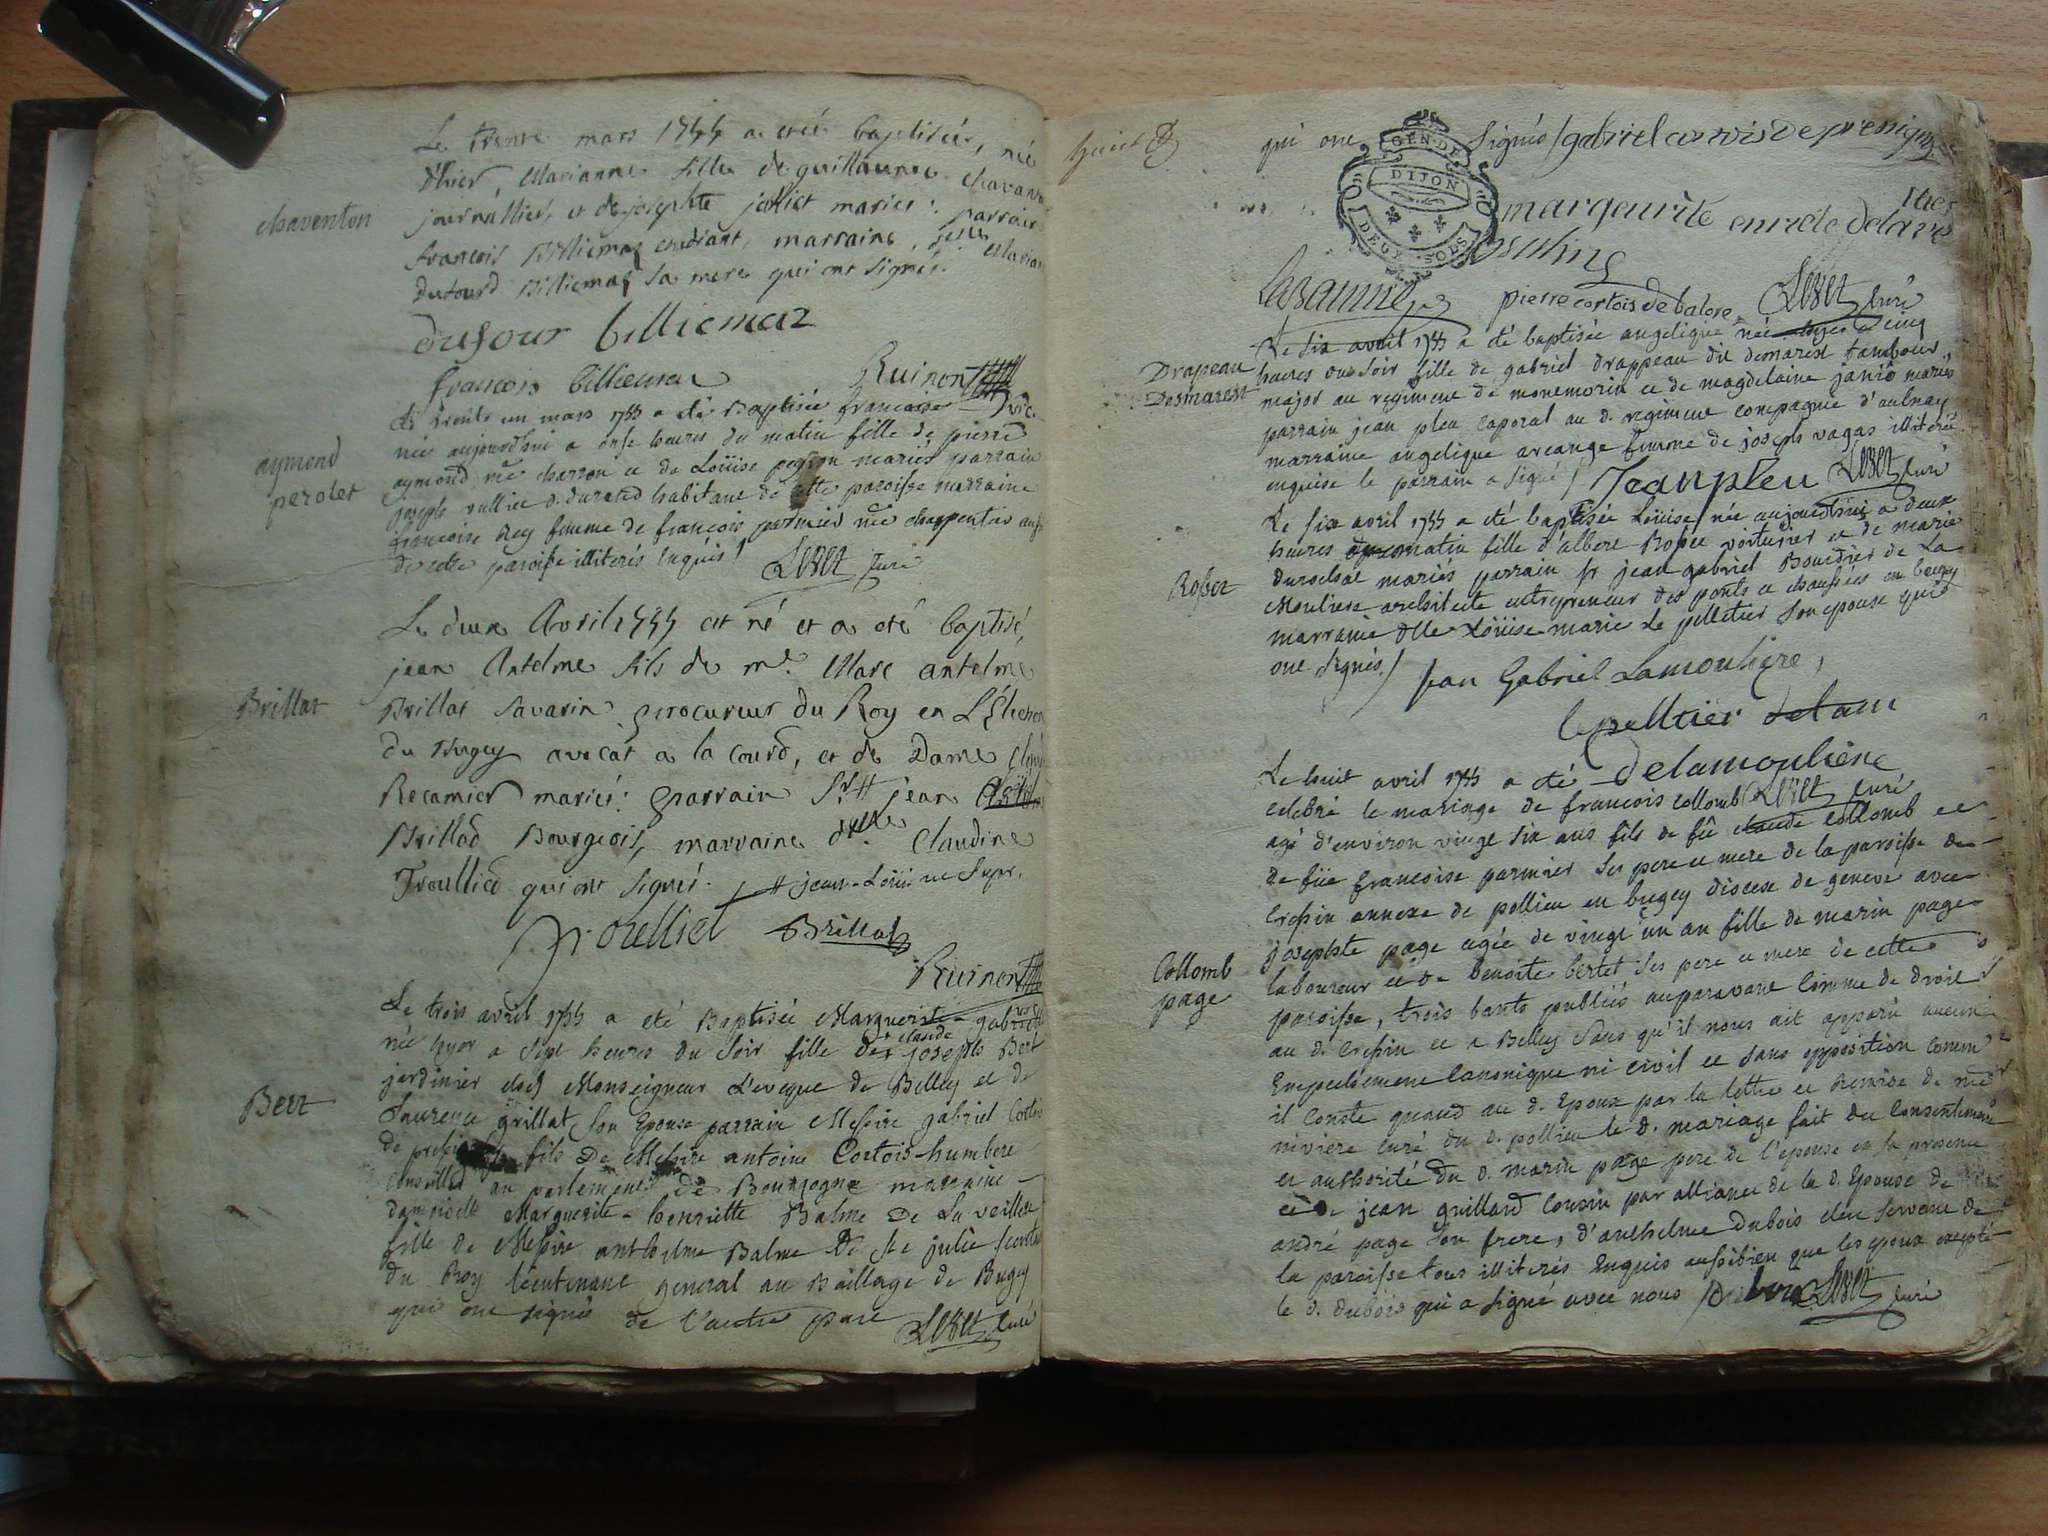 Le trente mars 1755 a eté baptisée, née
d'hier, Marianne fille de guillaume chavanton
journallier, et de josephte joliet mariés: parrain
chaventon
françois Billiemaz etudiant, marraine, delle Marian
dufourd Billiemaz sa mere qui ont signés.
dufour billiemaz
françois billiemaz Ruinon
Le trente un mars 1755 a été Baptisée françoise
née aujourdhui a onse heures du matin fille de pierre
aymond
perolet
aymond me charron et de Loüise mariés parrain
joseph d. durand habitant de cette paroisse marraine
françoise Rey femme de françois parmier me charpentier aussi
de cette paroisse illiterés enquis / Leset Curé
Le deux Avril 1755 est né et a eté baptisé,
jean Antelme fils de me. Marc antelme
Brillat
Brillat Savarin procureur du Roy en L'Election
du Bugey avocat a la courd, et de Dame
Recamier mariés: parrain Sr. # jean
Brillad Bourgeois, marraine delle Claudine
Troullied qui ont signés. # jean-Loüi
Brillat
Ruinon
Le trois avril 1755 a eté Baptisée Marguerite gabrielle
née hyer a sept heures du soir fille de claude joseph Bert
jardinier ches Monseigneur L'eveque de Belley et de
Bert
Laurence grillat son Epouse parrain Messire gabriel Cortois
de fils De Messire antoine Cortois-humbert
Conseiller au parlement de Bourgogne marraine
damoiselle Marguerite-henriette Balme De La
fille de Messire anthelme Balme De Ste julie
du Roy lieutenant general au Baillage de Bugey
qui ont signés de l'autre part Leset Curé
qui ont signés / gabriel cortois de
GEN. DE
DIJON
DEUX SOLS
margeurite
pierre cortois de balore Leset Curé
Le six avril 1755 a été baptisée angelique née a cinq
Drapeau
Desmarest
heures du soir fille de gabriel drappeau dit demarest tambour
major au regiment de monmorin et de magdelaine janio mariés
parrain jean pleu caporal au d. regiment compagnie d'aulnay
marraine angelique arcange femme de joseph vagas illiterée
enquise le parrain a signé / Jean pleu Leset Curé
Le six avril 1755 a été baptisée Loüise née aujourd'hui a deux
heures matin fille d'albert Ropet voiturier et de marie
Ropet
mariés parrain sr jean gabriel de La
Mouliere architecte entrepreneur des ponts et chaussées en bugey
marraine dlle Loüise marie Le pelletier son epouse qui
ont signés / jean Gabriel Lamouliere,
lepelltier delam
delamouliene
Le huit avril 1755 a été
celebré le mariage de françois collomb Leset Curé
agé d'environ vingt six ans fils de fû claude collomb et
de füe françoise parmier ses pere et mere de la paroisse de
Cressin annexe de pollieu en bugey diocese de geneve avec
josephte page agée de vingt un an fille de marin page
Collomb
page
laboureur et de benoite bertet ses pere et mere de cette
paroisse, trois bants publiés auparavant comme de droit
au d. Cressin et a Belley sans qu'il nous ait apparu aucun
Empechement canonique ni civil et sans opposition comm
il conste quand au d. Epoux par la lettre et Remise de me
niviere curé du d. pollieu le d. mariage fait du consentement
et authorité du d. marin page pere de l'epouse en sa presence
et de jean guillard cousin par alliance de la d. Epouse de
andré page son frere, d'anthelme dubois clerc servant de
la paroisse tous illiterés Enquis aussibien que les epoux excepté
le d. dubois qui a signé avec nous / Dubois Leset Curé